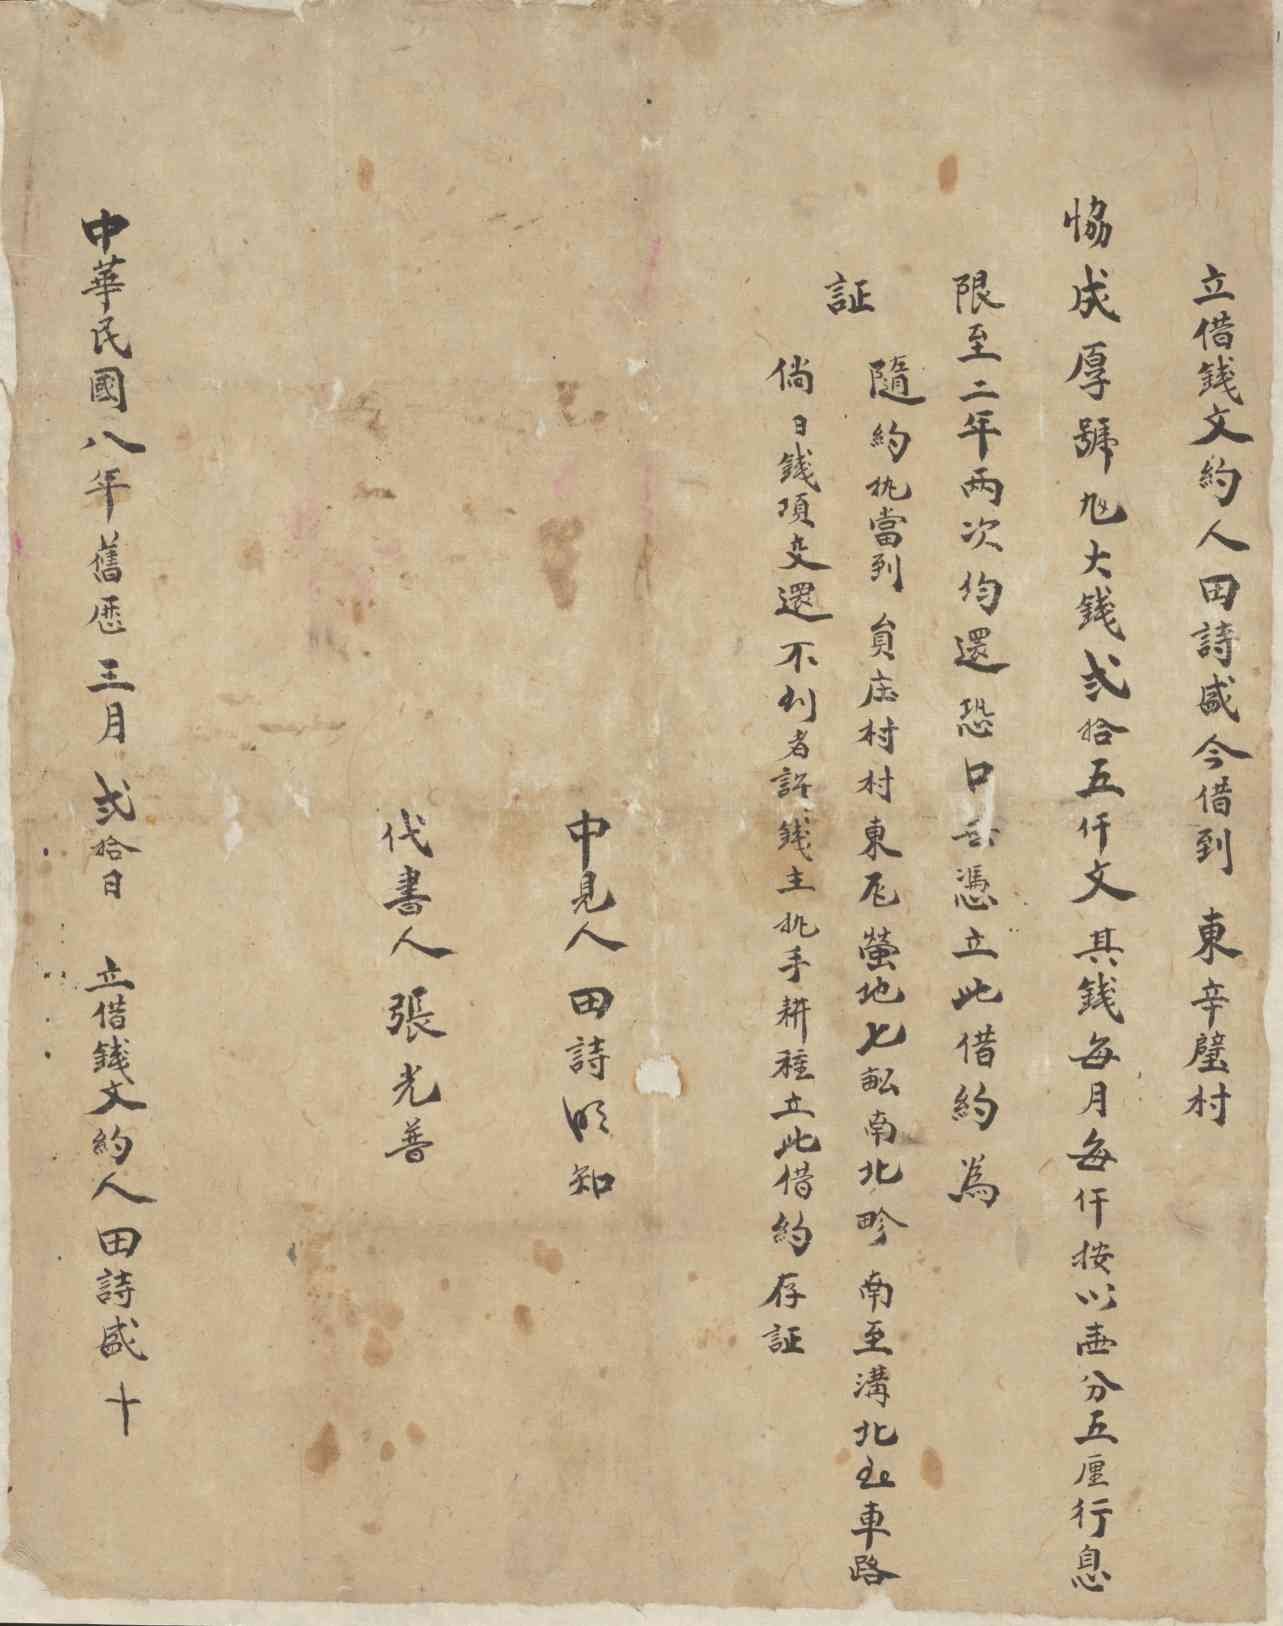 立借錢文約人田詩盛今借到 東辛壁村
協成厚號 大錢弍拾五仟文 其錢每月每仟按以壹分五厘行息
限至二年兩次均還恐口無憑立此借約為
証
隨約執當到 負庄村村東 地七畝南北畛 南至溝北至車路
倘日錢項交還不到者許錢主執手耕種立此借約存証
中見人 田詩 知
代書人 張光普
中華民國八年舊歷三月弍拾日 立借錢文約人田詩盛 十